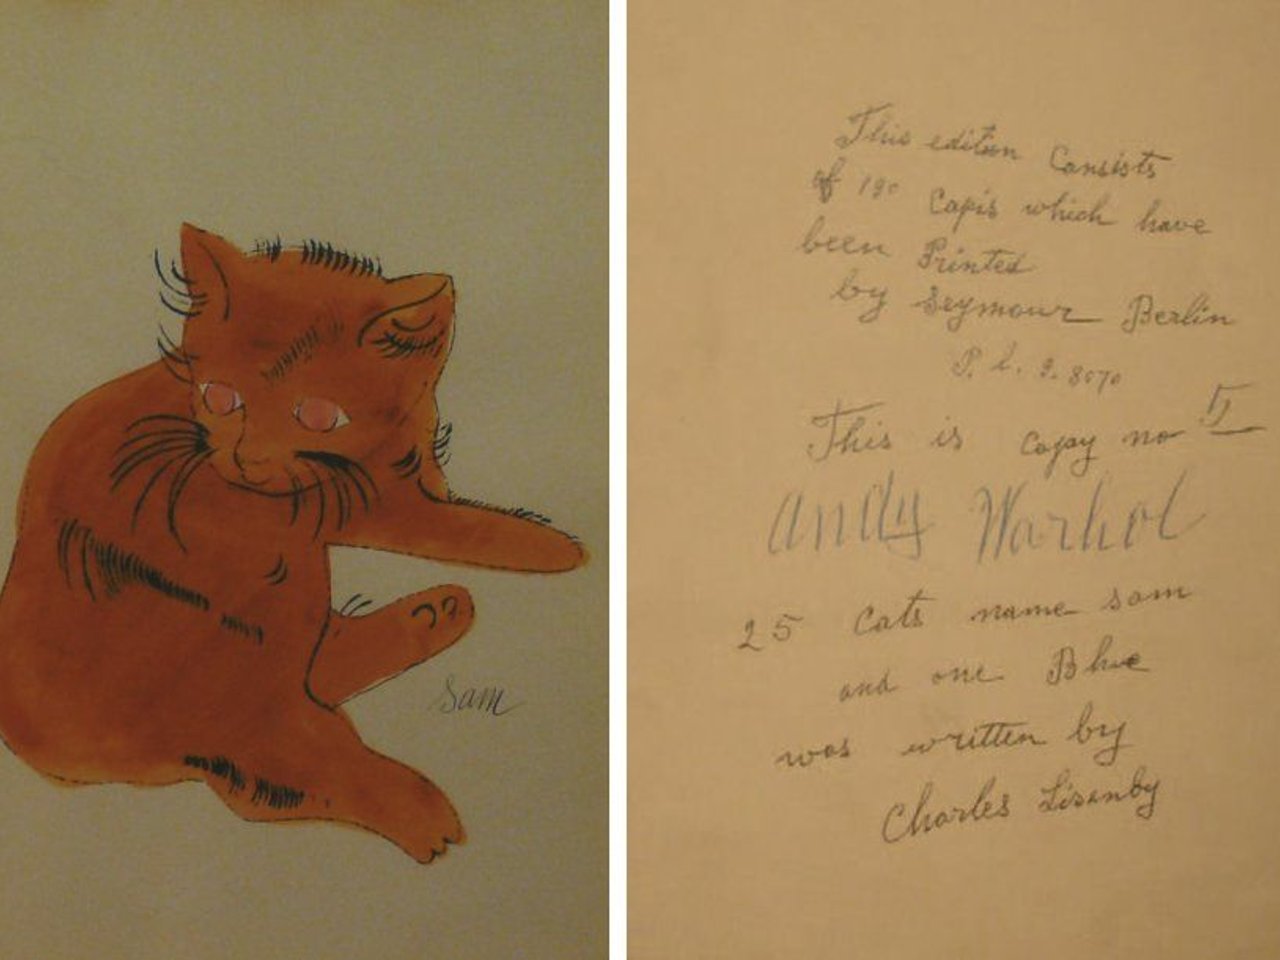 Sam
This edition Consists
of 190 Capis which have
been Printed
by Seymour Berlin
P. l. 9. 8070
This is copay no 5
Andy Warhol
25 Cats name sam
and one Blue
was written by
Charles Lisanby